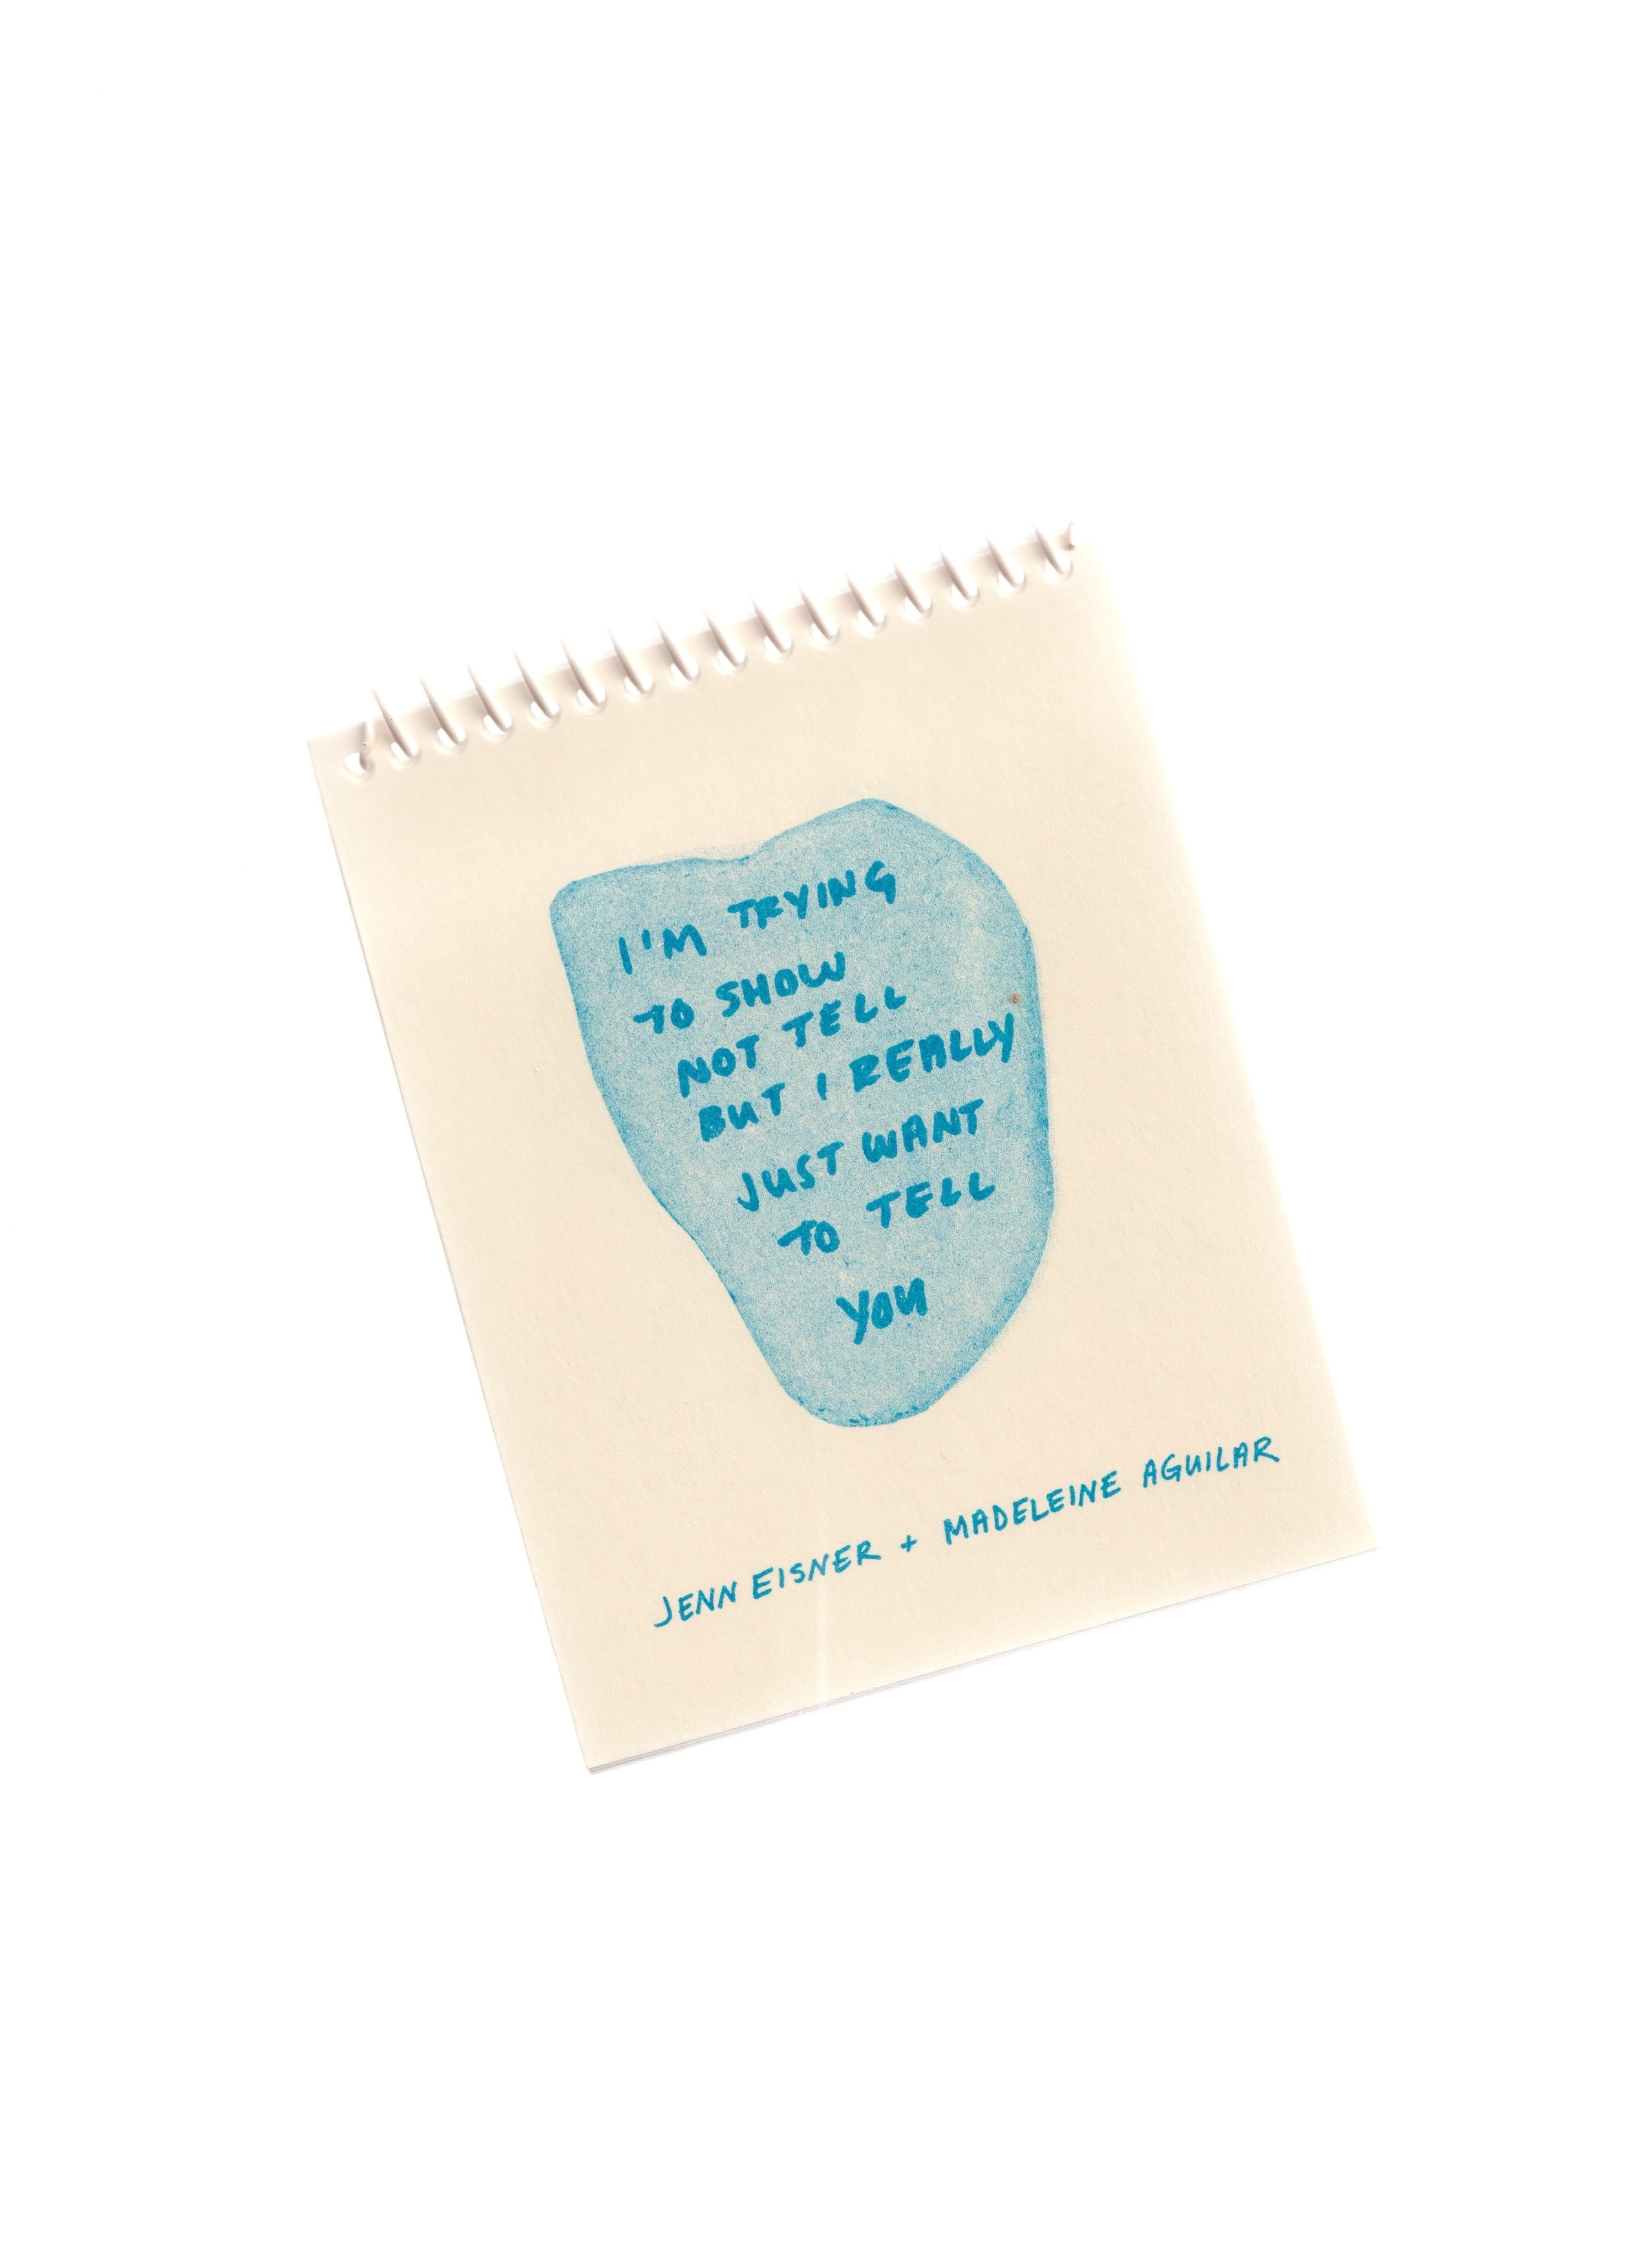 I'M TRYING
TO SHOW
NOT TELL
BUT I REALLY
JUST WANT
TO TELL
YOU
JENN EISNER + MADELEINE AGUILAR